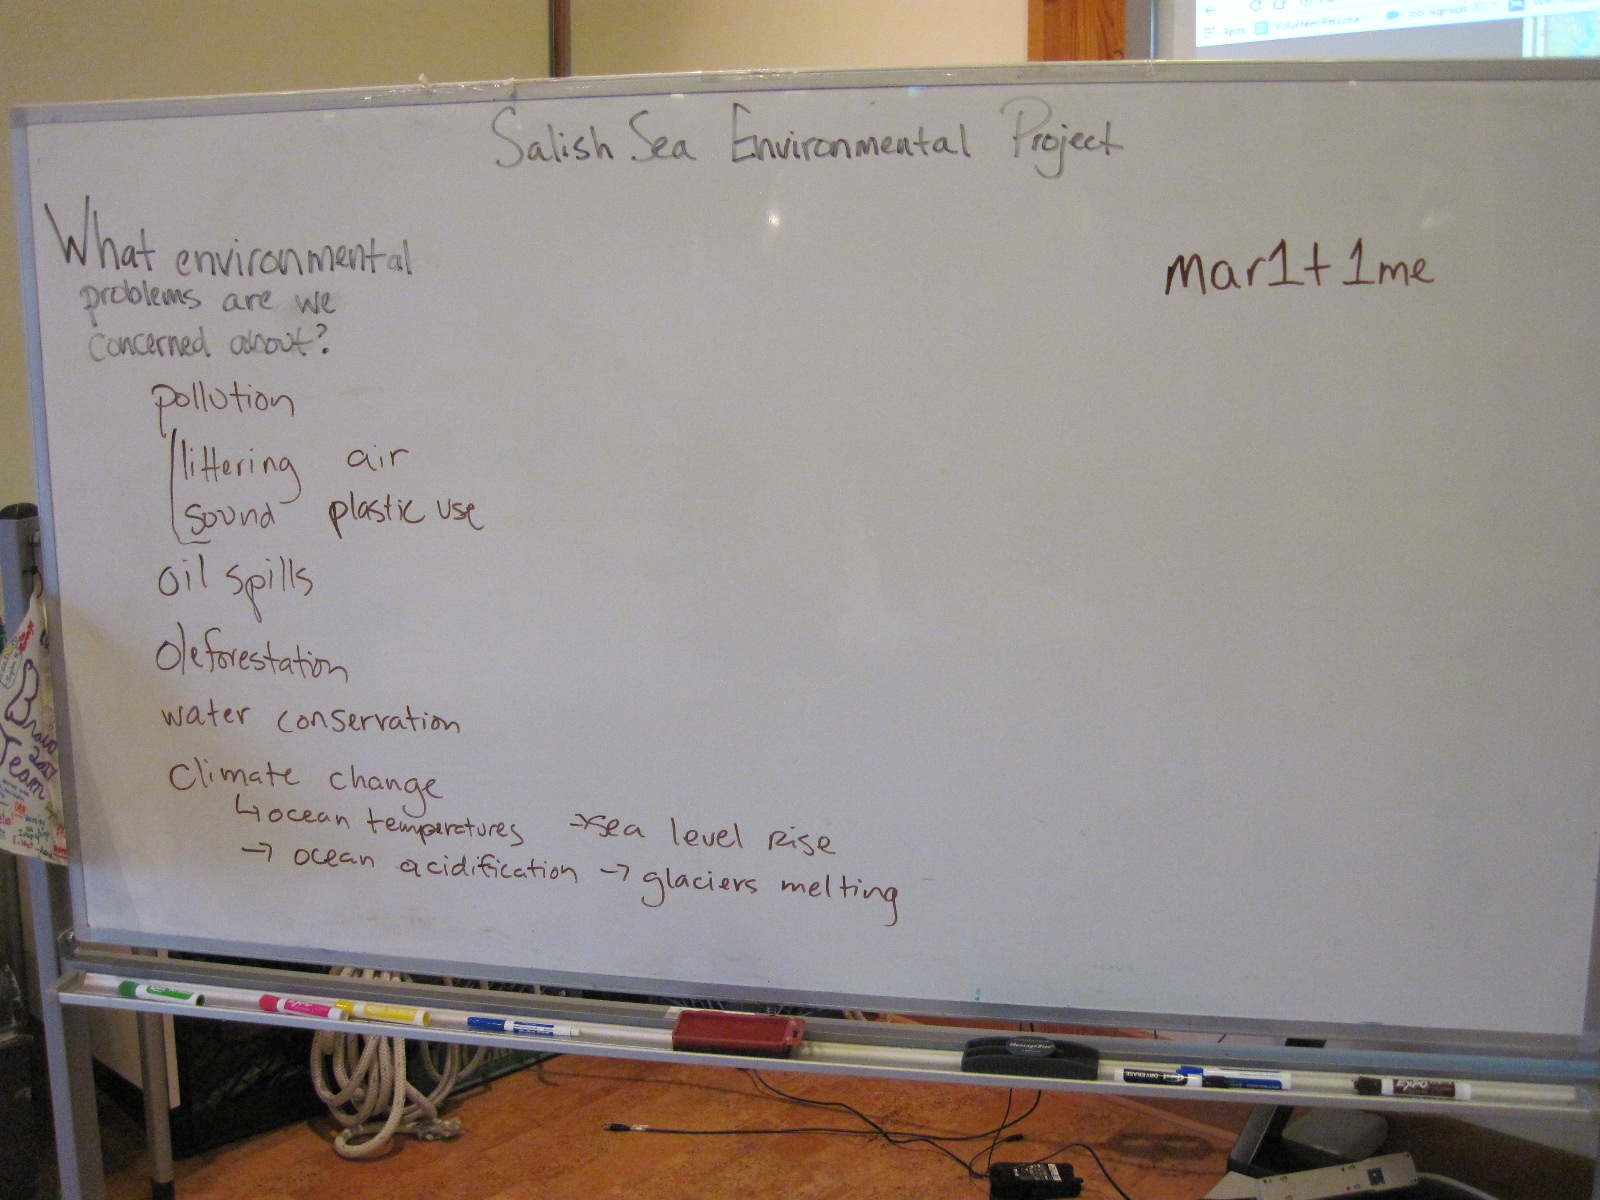 Salish Sea Environmental Project
What environmental
problems are we
concerned about?
mar1t1me
pollution
littering air
sound plastic use
oil spills
deforestation
water conservation
Climate change
↳ ocean temperatures → sea level rise
→ ocean acidification → glaciers melting
Apps Volunteer Persona
Brain
2017
Team
EXPO